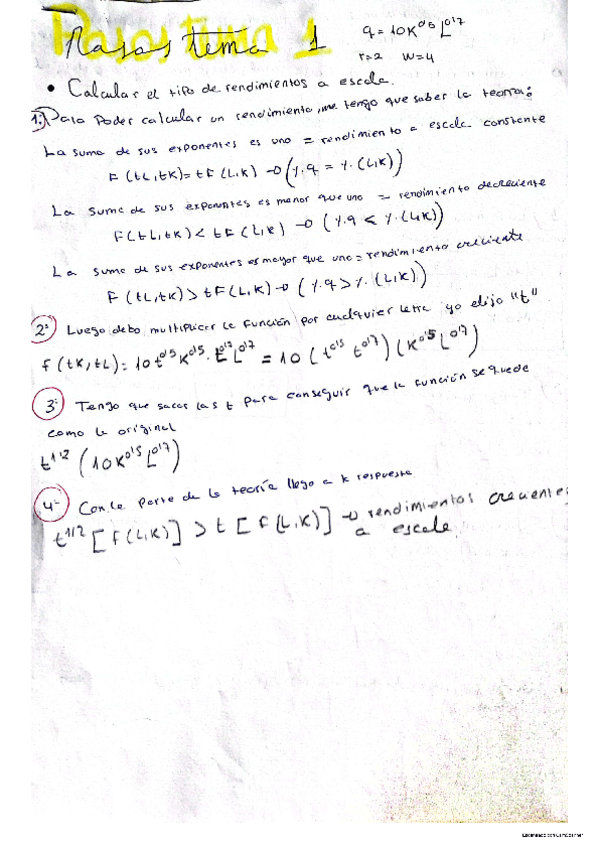 Pasos tema 1
q = 10K^0'5 L^0'7
r=2 w=4
• Calcular el tipo de rendimientos a escala.
1º) Para poder calcular un rendimiento, me tengo que saber la teoría:
La suma de sus exponentes es uno = rendimiento a escala constante
F (tL, tK) = tF (L,K) → (%q = %(L,K))
La suma de sus exponentes es menor que uno = rendimiento decreciente
F (tL, tK) < tF (L,K) → (%q < %(L,K))
La suma de sus exponentes es mayor que uno = rendimiento creciente
F (tL, tK) > tF (L,K) → (%q > %(L,K))
2º Luego debo multiplicar la función por cualquier letra yo elijo "t"
f (tK, tL) = 10 t^0'5 K^0'5 · t^0'7 L^0'7 = 10 (t^0'5 t^0'7) (K^0'5 L^0'7)
3º Tengo que sacar las t para conseguir que la función se quede
como la original
t^1'2 (10K^0'5 L^0'7)
4º Con la parte de la teoría llego a la respuesta
t^1'2 [f(L,K)] > t [f(L,K)] → rendimientos crecientes
a escala.